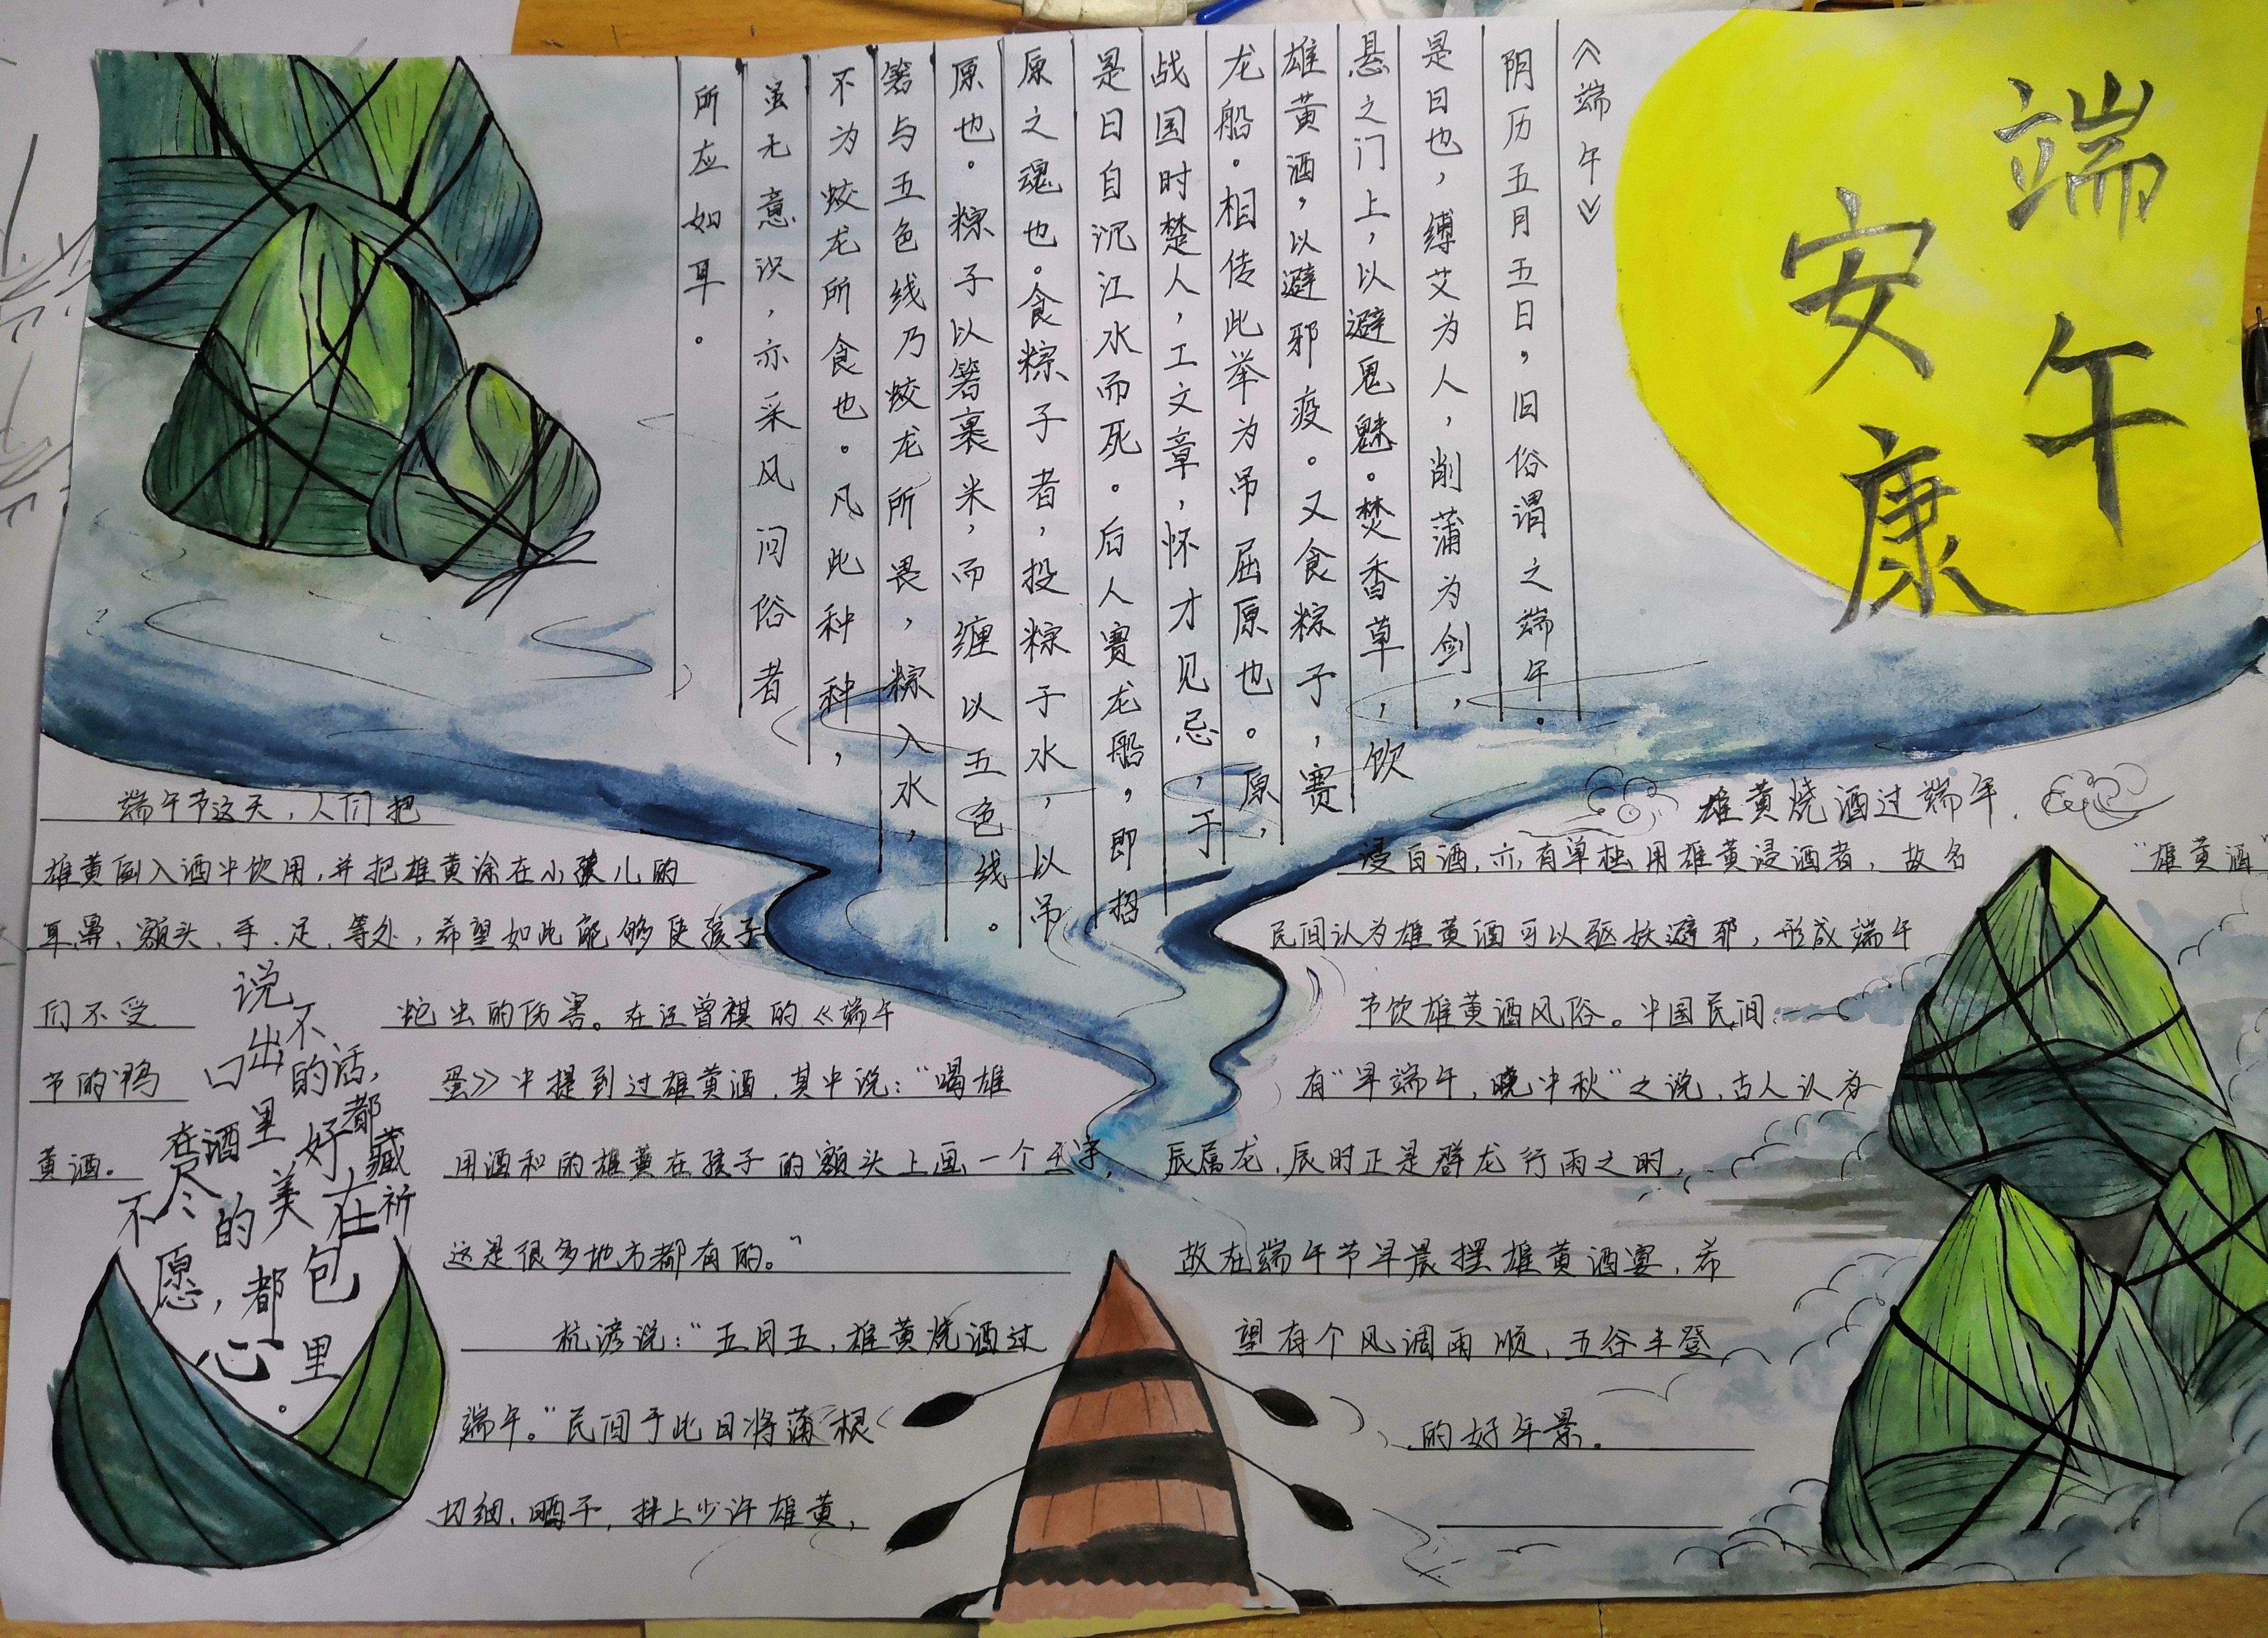 端午
安康
《端午》
阴历五月五日，旧俗谓之端午。
是日也，缚艾为人，削蒲为剑，
悬之门上，以避鬼魅。焚香草，饮
雄黄酒，以避邪疫。又食粽子，赛
龙船。相传此举为吊屈原也。原，
战国时楚人，工文章，怀才见忌，于
是日自沉江水而死。后人赛龙船，即招
原之魂也。食粽子者，投粽子水，以吊
原也。粽子以箬裹米，而缠以五色线。
箬与五色线乃蛟龙所畏，粽入水，
不为蛟龙所食也。凡此种种，
虽无意识，亦采风问俗者
所应如耳。
端午节这天，人们把
雄黄倒入酒中饮用，并把雄黄涂在小孩儿的
耳、鼻、额头、手、足、等处，希望如此能够使孩子
们不受 蛇虫的伤害。在汪曾祺的《端午
节的鸭 蛋》中提到过雄黄酒，其中说：“喝雄
黄酒。 用酒和的雄黄在孩子的额头上画一个王字，
这是很多地方都有的。”
杭谚说：“五月五，雄黄烧酒过
端午。”民间于此日将蒲根
切细、晒干，拌上少许雄黄，
说不
出口的话，
都藏
在酒里
不尽的美好
祈愿，都包
在心里。
雄黄烧酒过端午
浸白酒，亦有单独用雄黄浸酒者，故名 “雄黄酒”
民间认为雄黄酒可以驱妖避邪，形成端午
节饮雄黄酒风俗。中国民间
有“早端午，晚中秋”之说，古人认为
辰属龙，辰时正是群龙行雨之时，
故在端午节早晨摆雄黄酒宴，希
望有个风调雨顺、五谷丰登
的好年景。